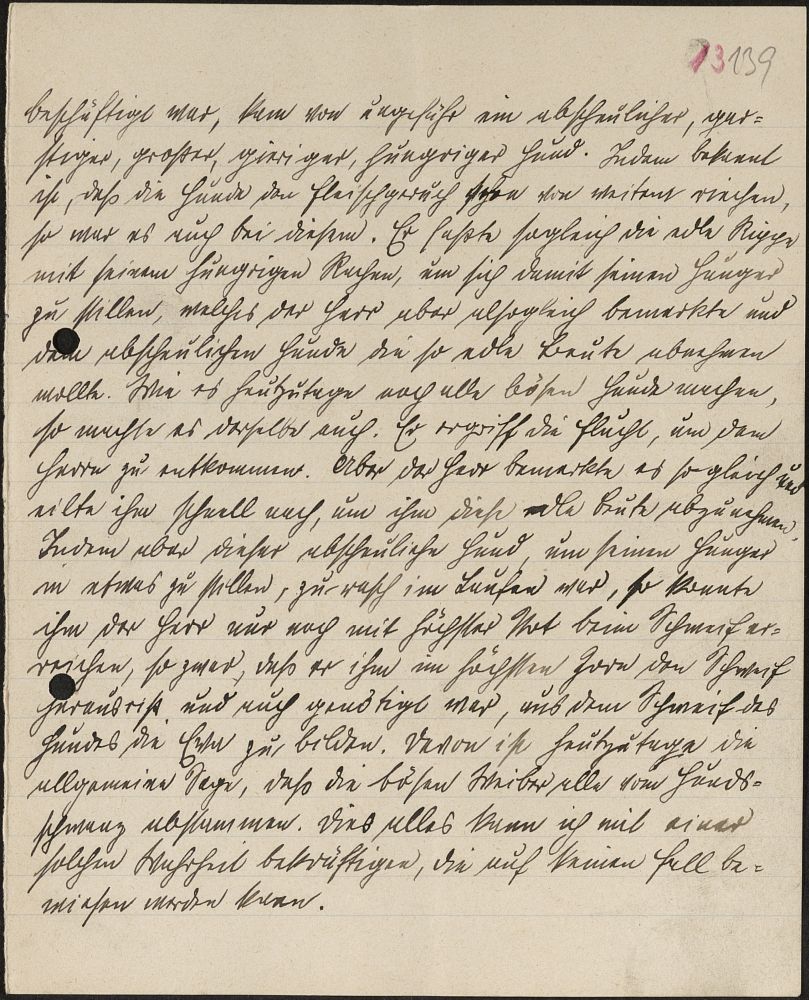 13 139
beschäftigt war, kam von ungefähr ein abscheulicher, gar-
stiger, großer, gieriger, hungriger Hund. Indem bekannt
ist, daß die Hunde den Fleischgeruch schon von weitem riechen,
so war es auch bei diesem. Er faßte sogleich die edle Rippe
mit seinem hungrigen Rachen, um sich damit seinen Hunger
zu stillen, welches der Herr aber alsogleich bemerkte und
dem abscheulichen Hunde die so edle Beute abnehmen
wollte. Wie es heutzutage noch alle bösen Hunde machen,
so machte es derselbe auch. Er ergriff die Flucht, um dem
Herrn zu entkommen. Aber der Herr bemerkte es sogleich und
eilte ihm schnell nach, um ihm diese edle Beute abzunehmen.
Indem aber dieser abscheuliche Hund, um seinen Hunger
in etwas zu stillen, zu rasch im Laufen war, so konnte
ihm der Herr nur noch mit höchster Not beim Schweif er-
reichen, so zwar, daß er ihm im höchsten Zorn den Schweif
herausriß und auch genötigt war, aus dem Schweif des
Hundes die Eva zu bilden. Davon ist heutzutage die
allgemeine Sage, daß die bösen Weiber alle vom Hunds-
schwanz abstammen. Dies alles kann ich mit einer
solchen Wahrheit bekräftigen, die auf keinen Fall be-
wiesen werden kann.